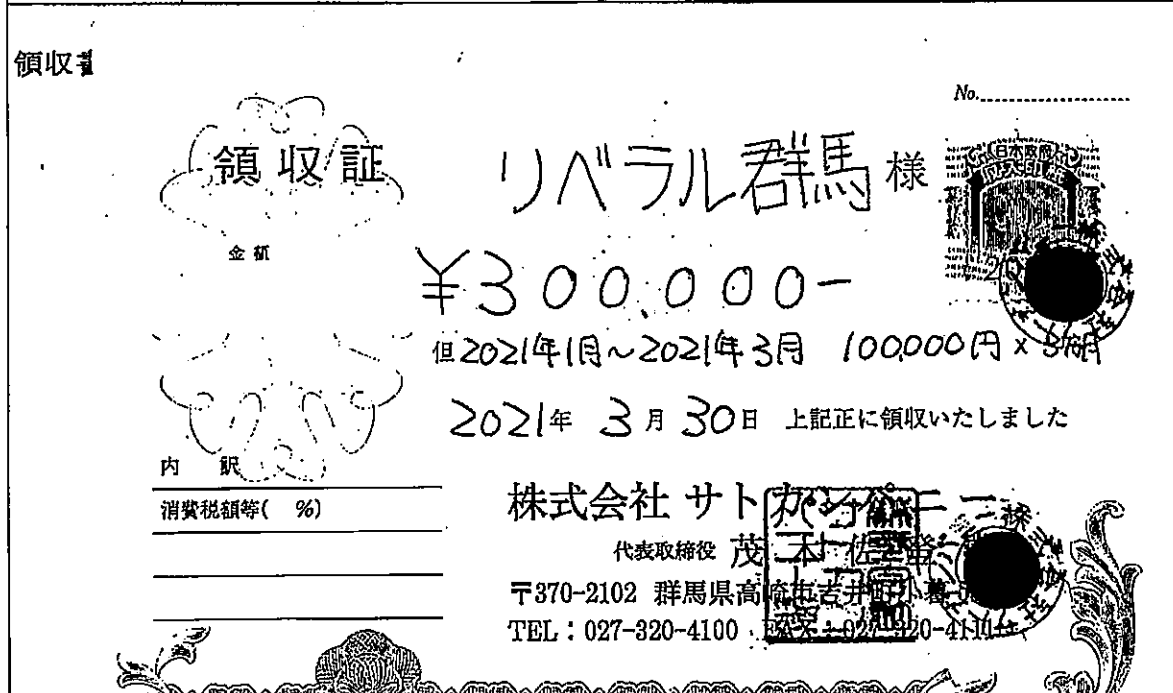 領収書
No.
領収証
リベラル群馬 様
日本政府
収入印紙
金額
¥300,000-
但2021年1月～2021年3月 100,000円×3ヶ月
2021年 3月 30日 上記正に領収いたしました
内 訳
消費税額等( %)
株式会社 サトカンパニー
代表取締役 茂木佐
〒370-2102 群馬県高崎市吉井町小暮
TEL：027-320-4100 FAX：027-320-4110